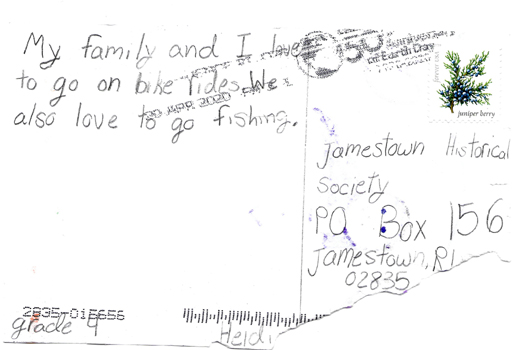 My family and I love
to go on bike rides. We
also love to go fishing.
50th Anniversary
of Earth Day
2020
juniper berry
Jamestown Historical
Society
PO Box 156
Jamestown, RI
02835
2835-015656
grade 4
Heidi